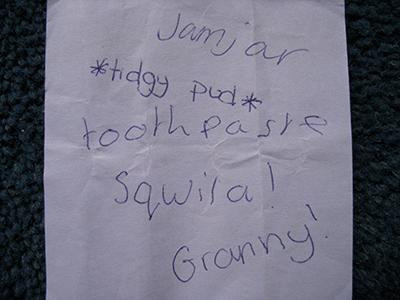 Jamjar
*tidgy pud*
toothpaste
Sqwila!
Granny!